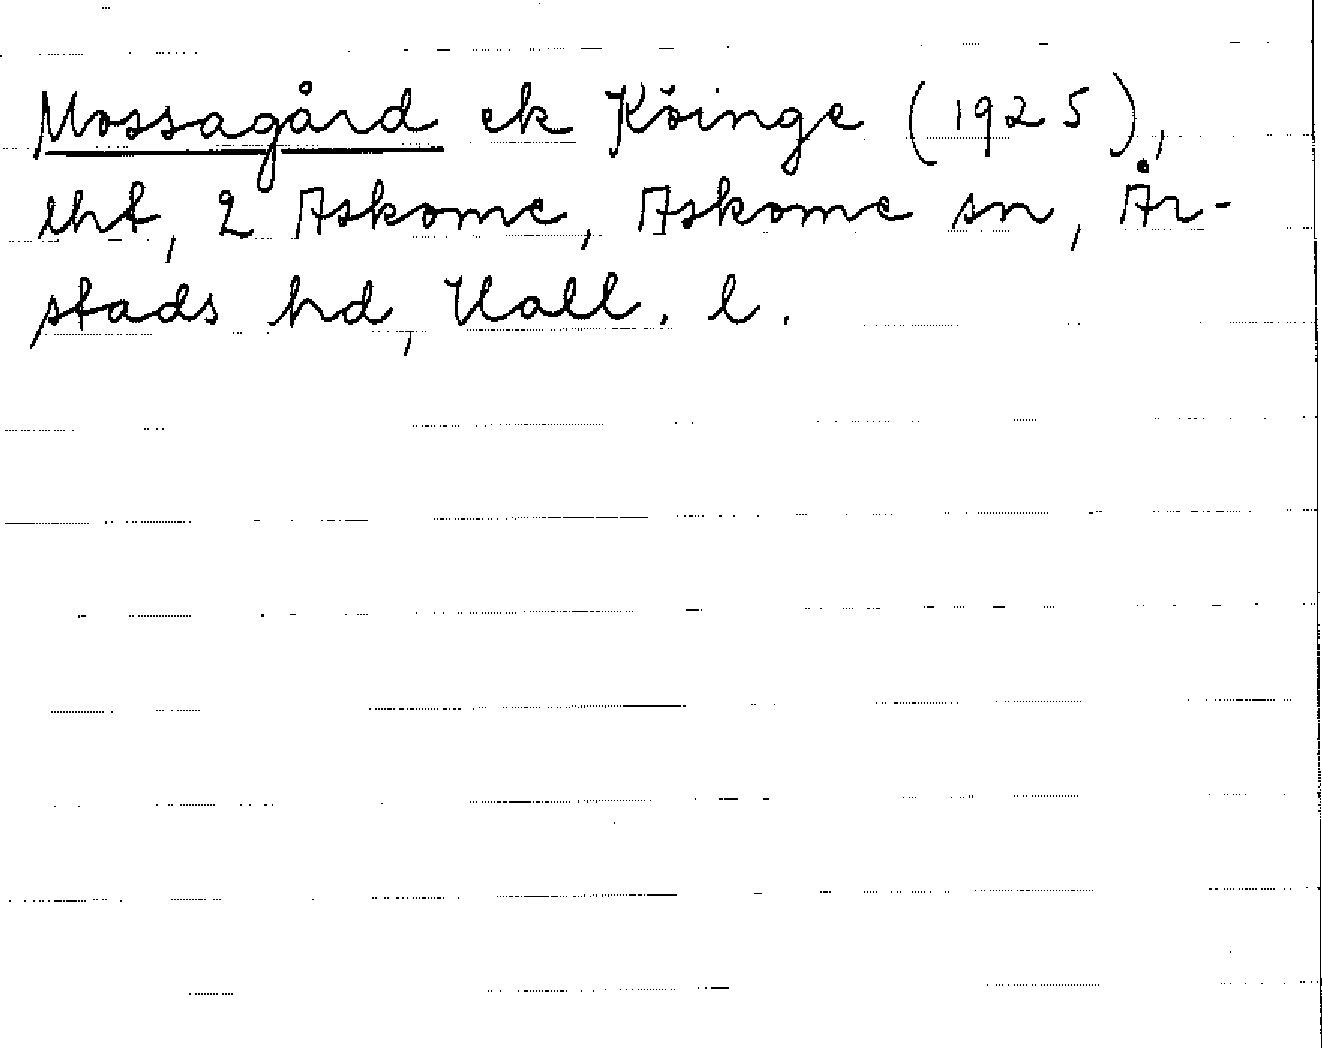 Mossagård ek Köinge (1925),
lht, 2 Askome, Askome sn, År-
stads hd, Hall. l.